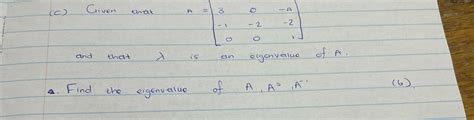 (c) Given that A = [3 0 -a
-1 -2 -2
0 0 1]
and that λ is an eigenvalue of A.
a. Find the eigenvalue of A, A², A⁻¹ (6).